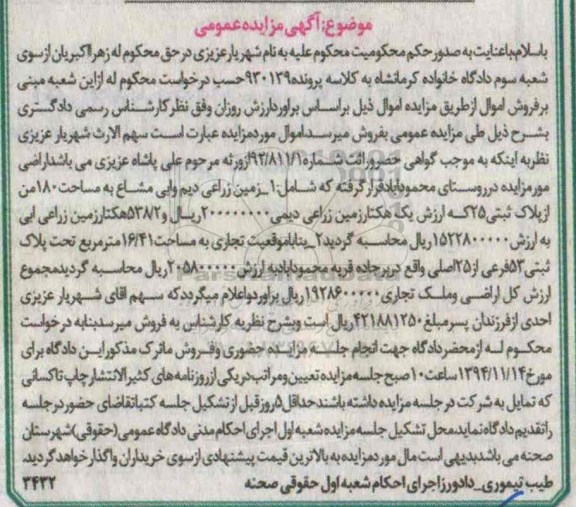 موضوع:آگهی مزایده عمومی
باسلام باعنایت به صدور حکم محکومیت محکوم علیه به نام شهریار عزیزی در حق محکوم له زهرا اکبریان از سوی
شعبه سوم دادگاه خانواده کرمانشاه به کلاسه پرونده ۹۳۰۱۳۹ حسب درخواست محکوم له ازاین شعبه مبنی
بر فروش اموال از طریق مزایده اموال ذیل براساس براورد ارزش روزان وفق نظر کارشناس رسمی دادگستری
بشرح ذیل طی مزایده عمومی بفروش میرسد اموال مورد مزایده عبارت است سهم الارث شهریار عزیزی
نظر به اینکه به موجب گواهی حصر وراثت شماره ۹۲/۸۱۱/۱ از ورثه مرحوم علی پاشاه عزیزی می باشد اراضی
مورمزایده در روستای محمودآباد قرار گرفته که شامل:۱_زمین زراعی دیم وابی مشاع به مساحت ۱۸۰من
از پلاک ثبتی ۲۵که ارزش یک هکتار زمین زراعی دیمی ۲۰۰۰۰۰۰۰۰ریال و ۵۳۸/۲هکتار زمین زراعی ابی
به ارزش ۱۵۲۲۸۰۰۰۰۰ریال محاسبه گردید ۲_بنا باموقعیت تجاری به مساحت ۱۶/۴۱مترمربع تحت پلاک
ثبتی ۵۳فرعی از ۲۵اصلی واقع در بر جاده قریه محمودآباد به ارزش ۲۰۵۸۰۰۰۰۰ریال محاسبه گردید مجموع
ارزش کل اراضی وملک تجاری ۱۹۲۸۶۰۰۰۰۰ریال براورد واعلام میگردد که سهم اقای شهریار عزیزی
احدی از فرزندان پسر مبلغ ۴۲۱۸۸۱۲۵۰ریال است وبشرح نظریه کارشناس به فروش میرسد بنابه درخواست
محکوم له از محضر دادگاه جهت انجام جلسه مزایده حضوری وفروش ماترک مذکور این دادگاه برای
مورخ ۱۳۹۴/۱۱/۱۴ساعت ۱۰ صبح جلسه مزایده تعیین ومراتب در یکی از روزنامه های کثیرالانتشار چاپ تا کسانی
که تمایل به شرکت در جلسه مزایده داشته باشند حداقل ۵روز قبل از تشکیل جلسه کتبا تقاضای حضور در جلسه
را تقدیم دادگاه نماید.محل تشکیل جلسه مزایده شعبه اول اجرای احکام مدنی دادگاه عمومی (حقوقی) شهرستان
صحنه می باشد بدیهی است مال مورد مزایده به بالاترین قیمت پیشنهادی از سوی خریداران واگذار خواهد گردید.
طیب تیموری_دادورز اجرای احکام شعبه اول حقوقی صحنه ۳۴۳۲